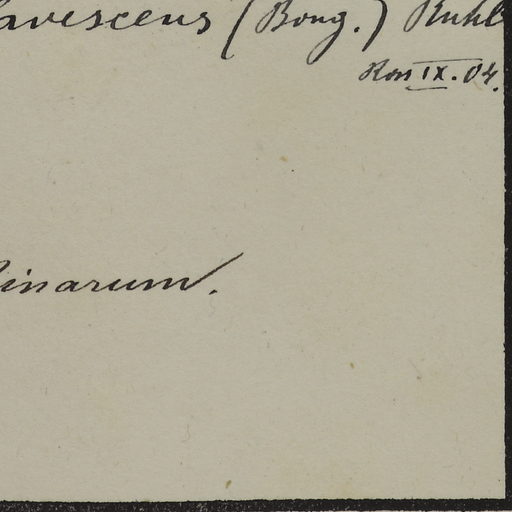 avescens (Bong.) Ruhl
IX.04.
inarum.